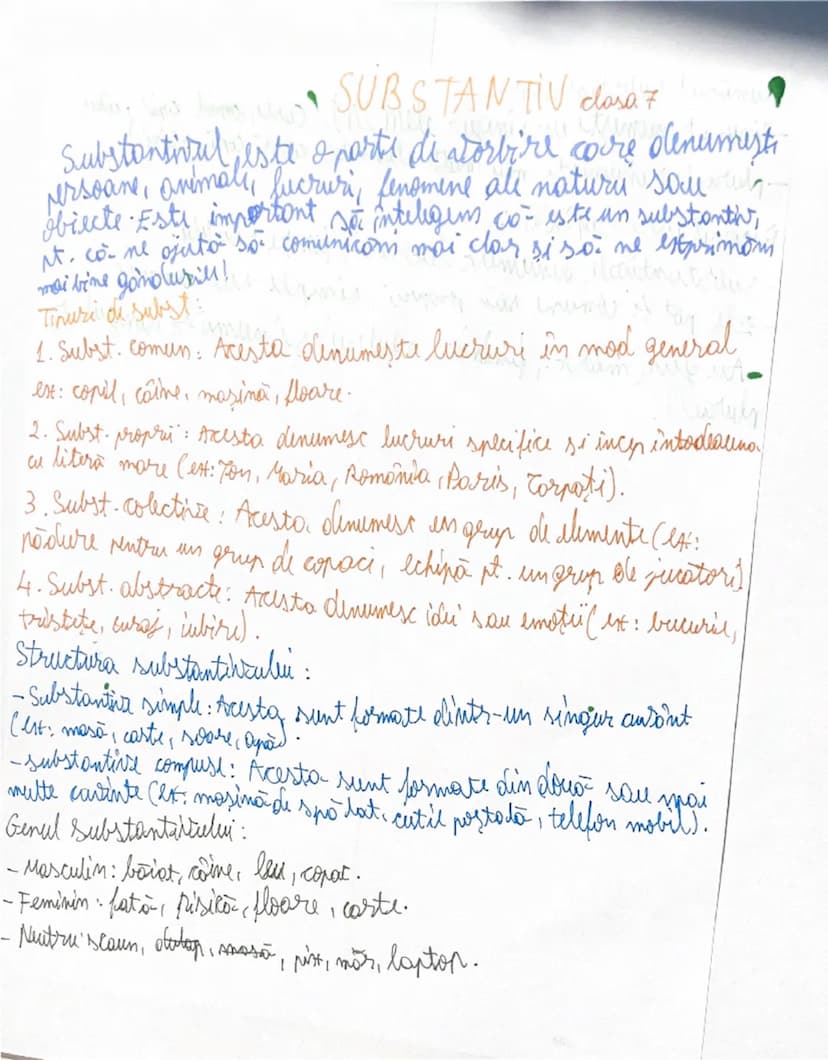 SUBSTANTIV clasa 7
Substantivul este o parte de vorbire care denumește
persoane, animale, lucruri, fenomene ale naturii sau
obiecte. Este important să înțelegem că este un substantiv,
pt. că ne ajută să comunicăm mai clar și să ne exprimăm
mai bine gândurile!
Tipuri de subst:
1. Subst. comun: Acesta denumește lucruri în mod general
ex: copil, câine, mașină, floare.
2. Subst. proprii: Acesta denumesc lucruri specifice și încep întodeauna
cu literă mare (ex: Ion, Maria, România, Paris, Carpați).
3. Subst. colective: Acesta denumesc un grup de elemente (ex:
pădure pentru un grup de copaci, echipă pt. un grup de jucători)
4. Subst. abstracte: Acesta denumesc idei sau emoții (ex: bucurie,
tristețe, curaj, iubire).
Structura substantivului:
- Substantive simple: Acesta sunt formate dintr-un singur cuvânt
(ex: masă, carte, soare, apă).
- substantive compuse: Acesta sunt formate din două sau mai
multe cuvinte (ex: mașină de spălat, cutie poștală, telefon mobil).
Genul Substantivului:
- Masculin: băiat, câine, leu, copac.
- Feminin: fată, pisică, floare, carte.
- Neutru: scaun, masă, pix, măr, laptop.